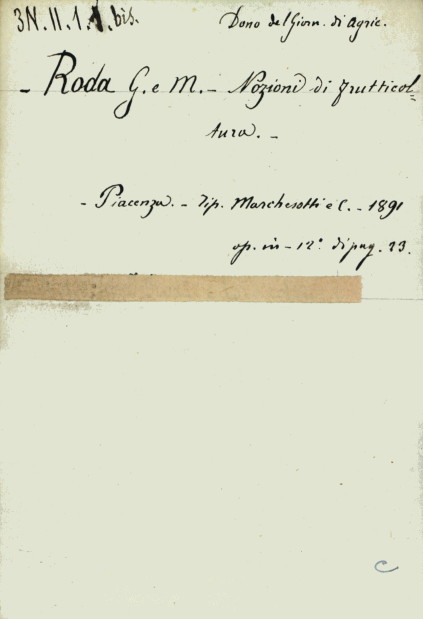 3N.II.1.1.bis.
Dono del Giorn. di Agric.
- Roda G. e M. - Nozioni di frutticol=
tura. -
- Piacenza. - Tip. Marchesotti e C. - 1891
op. in - 12° di pag. 23.
C